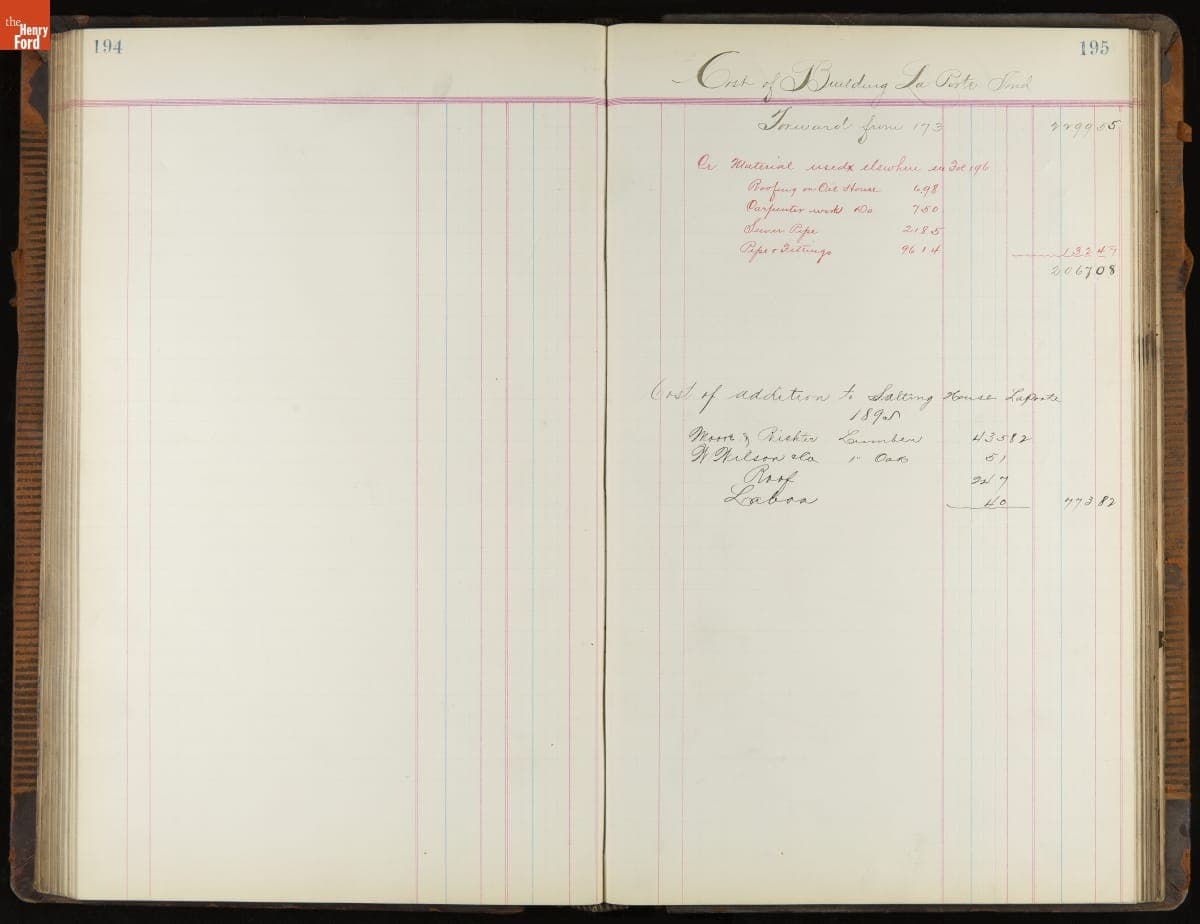 the
Henry
Ford
194
195
Cost of Building La Porte Ind
Forward from 173 219955
Cr Material used elsewhere see Fol 196
Roofing on Oil House 698
Carpenter work Do 750
Sewer Pipe 2185
Pipe & Fittings 9614 13247
206708
Cost of addition to Salting House Laporte
1895
Moore & Richter Lumber 43582
W Wilson &Co " Oak 51
Roof 247
Labor 40 77382